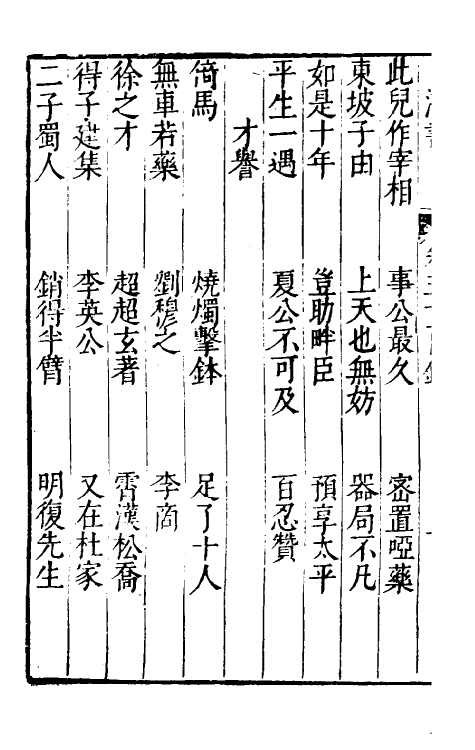 此兒作宰相　事公最久　密置啞藥
東坡子由　上天也無妨　器局不凡
如是十年　豈助畔臣　預享太平
平生一遇　夏公不可及　百忍贊
才譽
倚馬　燒燭擊鉢　足了十人
無車若藥　劉穆之　李商
徐之才　超超玄著　霄漢松喬
得子建集　李英公　又在杜家
二子蜀人　銷得半臂　明復先生